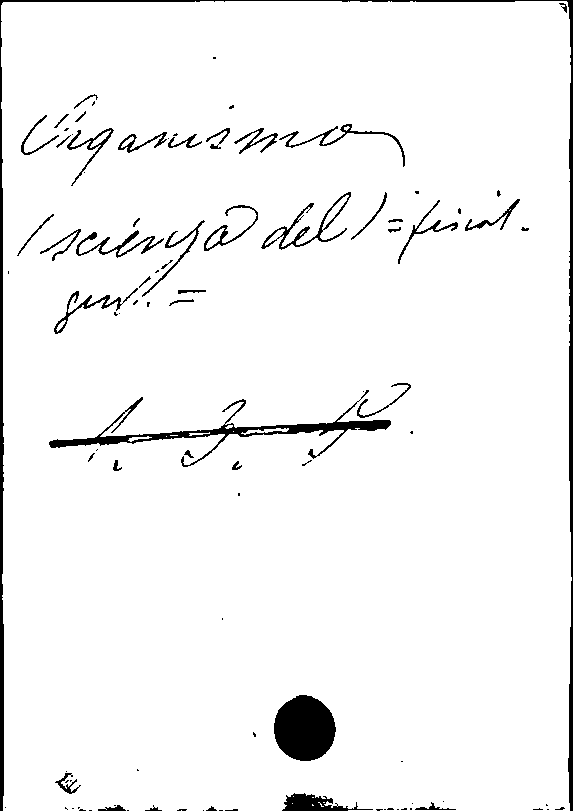 Organismo
(scienza del) = fisiol.
gen. =